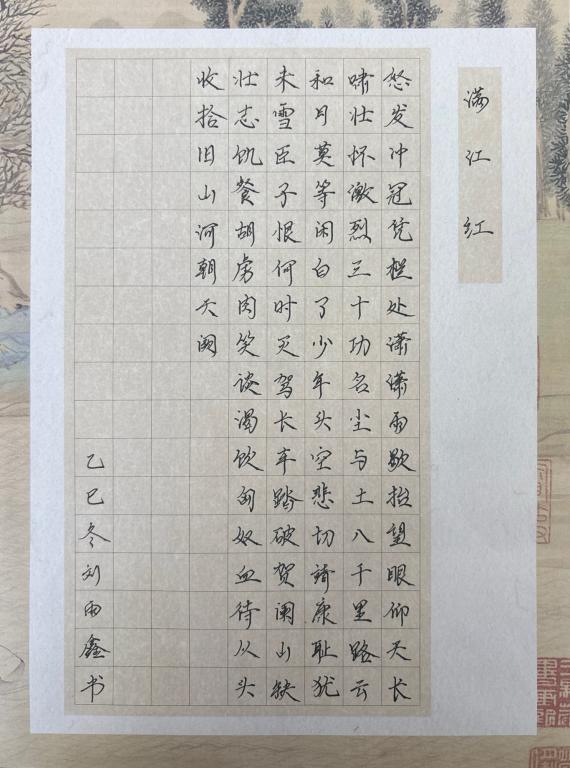 满江红
怒发冲冠凭栏处潇潇雨歇抬望眼仰天长
啸壮怀激烈三十功名尘与土八千里路云
和月莫等闲白了少年头空悲切靖康耻犹
未雪臣子恨何时灭驾长车踏破贺阑山缺
壮志饥餐胡虏肉笑谈渴饮匈奴血待从头
收拾旧山河朝天阙
乙巳冬刘雨鑫书